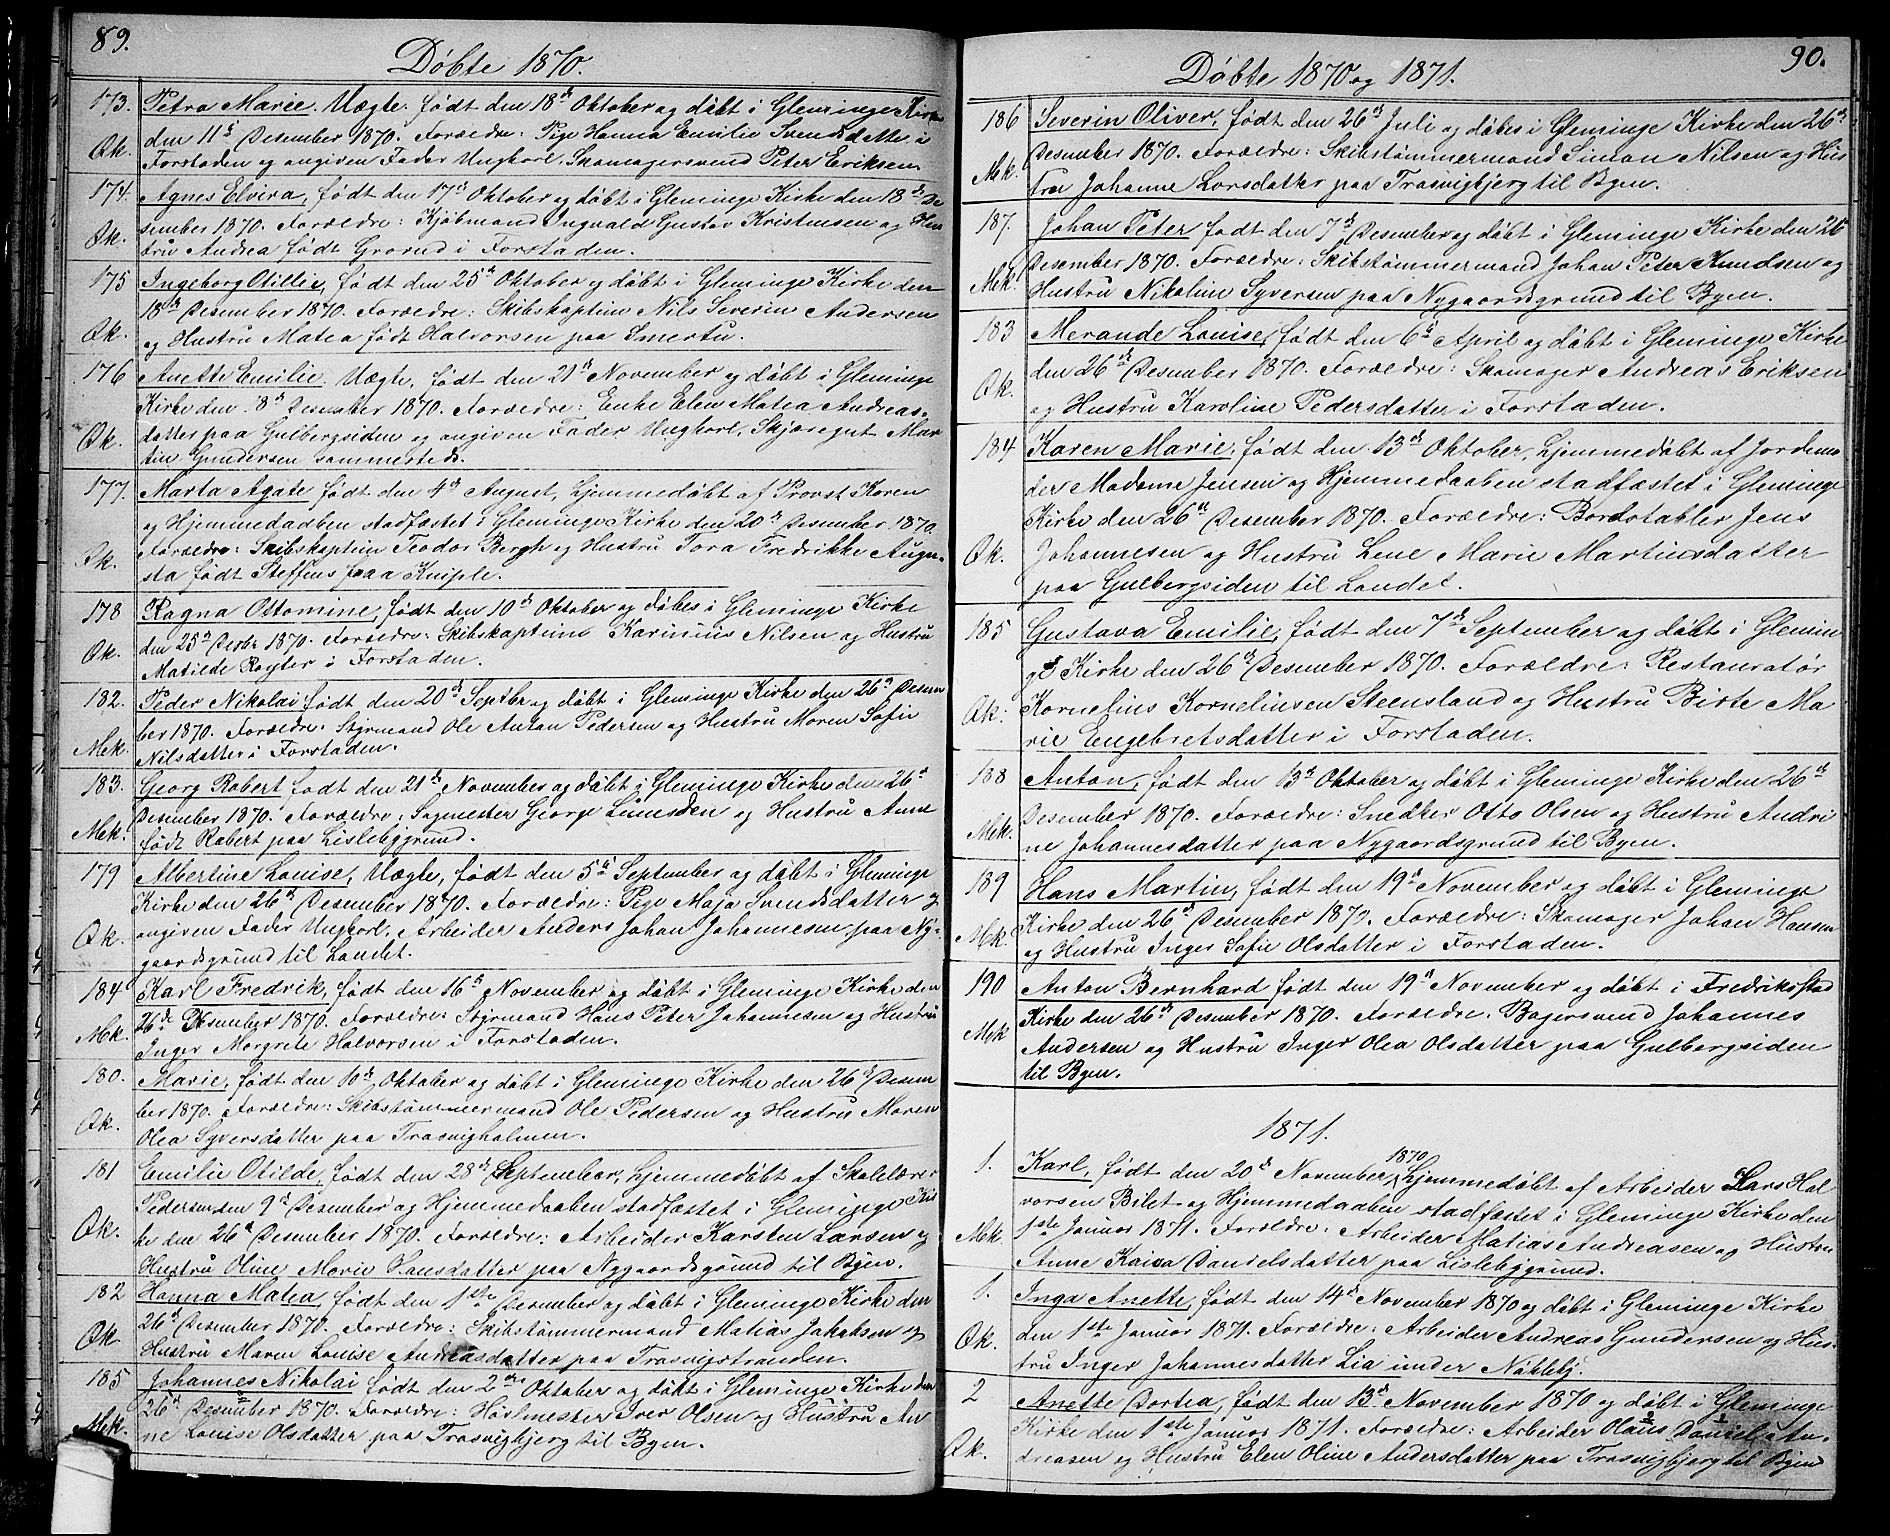 89.
Døbte 1870.
173. Petra Marie. Uægte. født den 18de Oktober og døbt i Gleminge Kirke
den 11te Desember 1870. Forældre: Pige Hanna Emilie Svendsdatte i
Qk. Forstaden og angiven Fader Ungkarl, Skomagersvend Peter Eriksen.
174. Agnes Elvira, født den 17de Oktober og døbt i Gleminge Kirke den 18de De
sember 1870. Forældre: Kjøbmand Ingvald Gustav Kristensen og Hus
Qk. tru Andrea født Grorud i Forstaden.
175 Ingeborg Otillie, født den 25de Oktober og døbt i Gleminge Kirke den
18de Desember 1870. Forældre: Skibskaptein Nils Severin Andersen
Qk. og Hustru Matea født Halvorsen paa Smertu.
176 Anette Emilie. Uægte, født den 21de November og døbt i Gleminge
Kirke den 18de Desember 1870. Forældre: Enke Elen Matea Andreas-
Qk. datter paa Gulbergsiden og angiven Fader Ungkarl, Skjæregut Mar
tin Gundersen sammesteds.
177. Marta Agate født den 4de August, hjemmedøbt af Provst Koren
og Hjemmedaaben stadfæstet i Gleminge Kirke den 20de Desember 1870.
Qk. Forældre: Skibskaptein Teodor Bergh og Hustru Tora Fredrikke Augu-
sta født Steffens paa Kniple.
178 Ragna Ottomine, født den 10de Oktober og døbes i Gleminge Kirke
den 25de Desbr 1870. Forældre: Skibskaptein Karinius Nilsen og Hustru
Qk. Matilde Røyter i Forstaden.
182. Peder Nikolai født den 20de Septbr og døbt i Gleminge Kirke den 26de Desem
ber 1870. Forældre: Styrmand Ole Anton Pedersen og Hustru Maren Sofie
Mek. Nilsdatter i Forstaden.
183. Georg Robert født den 21de November og døbt i Gleminge Kirke den 26de
Desember 1870. Forældre: Sagmester George Lumsden og Hustru Anne
Mek. født Robert paa Lislebygrund.
179 Albertine Louise, Uægte, født den 5te September og døbt i Gleminge
Kirke den 26de Desember 1870. Forældre: Pige Maja Svendsdatter og
Qk. angiven Fader Ungkarl, Arbeider Anders Johan Johannesen paa Ny-
gaardsgrund til Landet.
184 Karl Fredrik, født den 16de November og døbt i Gleminge Kirke den
26de Desember 1870. Forældre: Styrmand Hans Peter Johannesen og Hustru
Mek. Inger Margrete Halvorsen i Forstaden.
180. Marie, født den 10de Oktober og døbt i Gleminge Kirke den 26de Desem
ber 1870. Forældre: Skibstømmermand Ole Pedersen og Hustru Maren
Qk. Olea Syversdatter paa Trasvigholmen.
181 Emilie Otilde, født den 28de September, hjemmedøbt af Skolelærer
Pedersen den 9de Desember og Hjemmedaaben stadfæstet i Gleminge Kir
Qk. ke den 26de Desember 1870. Forældre: Arbeider Karsten Larsen og
Hustru Oline Marie Hansdatter paa Nygaardsgrund til Byen.
182 Hanna Matea, født den 1ste Desember og døbt i Gleminge Kirke den
26de Desember 1870. Forældre: Skibstømmermand Matias Jakobsen og
Qk. Hustru Maren Louise Andreasdatter paa Trasvigstranden.
185 Johannes Nikolai født den 2den Oktober og døbt i Gleminge Kirke den
26de Desember 1870. Forældre: Høvlmester Iver Olsen og Hustru An
Mek. ne Louise Olsdatter paa Trasvigbjerg til Byen.
90.
Døbte 1870 og 1871.
186 Severin Oliver, født den 26de Juli og døbes i Gleminge Kirke den 26de
Desember 1870. Forældre: Skibstømmermand Simon Nilsen og Hus
Mek. tru Johanne Larsdatter paa Trasvigbjerg til Byen.
187. Johan Peter født den 7de Desember og døbt i Gleminge Kirke den 26de
Desember 1870. Forældre: Skibstømmermand Johan Peter Knudsen og
Mek. Hustru Nikoline Syversen paa Nygaardsgrund til Byen.
183 Merande Louise, født den 6te April og døbt i Gleminge Kirke
den 26de Desember 1870. Forældre: Skomager Andreas Eriksen
Qk. og Hustru Karoline Pedersdatter i Forstaden.
184 Karen Marie, født den 13de Oktober, hjemmedøbt af Jordemo
der Madame Jensen og Hjemmedaaben stadfæstet i Gleminge
Kirke den 26de Desember 1870. Forældre: Bordstabler Jens
Qk. Johannesen og Hustru Lene Marie Martinsdatter
paa Gulbergsiden til Landet.
185 Gustava Emilie, født den 7de September og døbt i Glemin
ge Kirke den 26de Desember 1870. Forældre: Restauratør
Qk. Kornelius Korneliusen Steensland og Hustru Birte Ma
rie Engebretsdatter i Forstaden.
188 Anton, født den 13de Oktober og døbt i Gleminge Kirke den 26de
Desember 1870. Forældre: Snedker Otto Olsen og Hustru Andri
Mek. ne Johannesdatter paa Nygaardsgrund til Byen.
189 Hans Martin, født den 19de November og døbt i Gleminge
Kirke den 26de Desember 1870. Forældre: Skomager Johan Hansen
Mek. og Hustru Inger Sofie Olsdatter i Forstaden.
190 Anton Bernhard født den 19de November og døbt i Fredriksstad
Kirke den 26de Desember 1870. Forældre: Bagersvend Johannes
Mek Andersen og Hustru Inger Olea Olsdatter paa Gulbergsiden
til Byen.
1871.
1. Karl, født den 20de November 1870, hjemmedøbt af Arbeider Lars Hal
vorsen Bilet og Hjemmedaaben stadfæstet i Gleminge Kirke den
Mek. 1ste Januar 1871. Forældre: Arbeider Matias Andreasen og Hustru
Anne Kaisa Danielsdatter paa Lislebygrund.
1. Inga Anette, født den 14de November 1870 og døbt i Gleminge Kirke
den 1ste Januar 1871. Forældre: Arbeider Andreas Gundersen og Hus-
Qk. tru Inger Johannesdatter Lia under Nøkleby.
2 Anette Dortea, født den 13de November 1870 og døbt i Gleminge
Kirke den 1ste Januar 1871. Forældre: Arbeider Olaus Daniel An-
Qk. dreasen og Hustru Elen Oline Andersdatter paa Trasvigbjerg til Byen